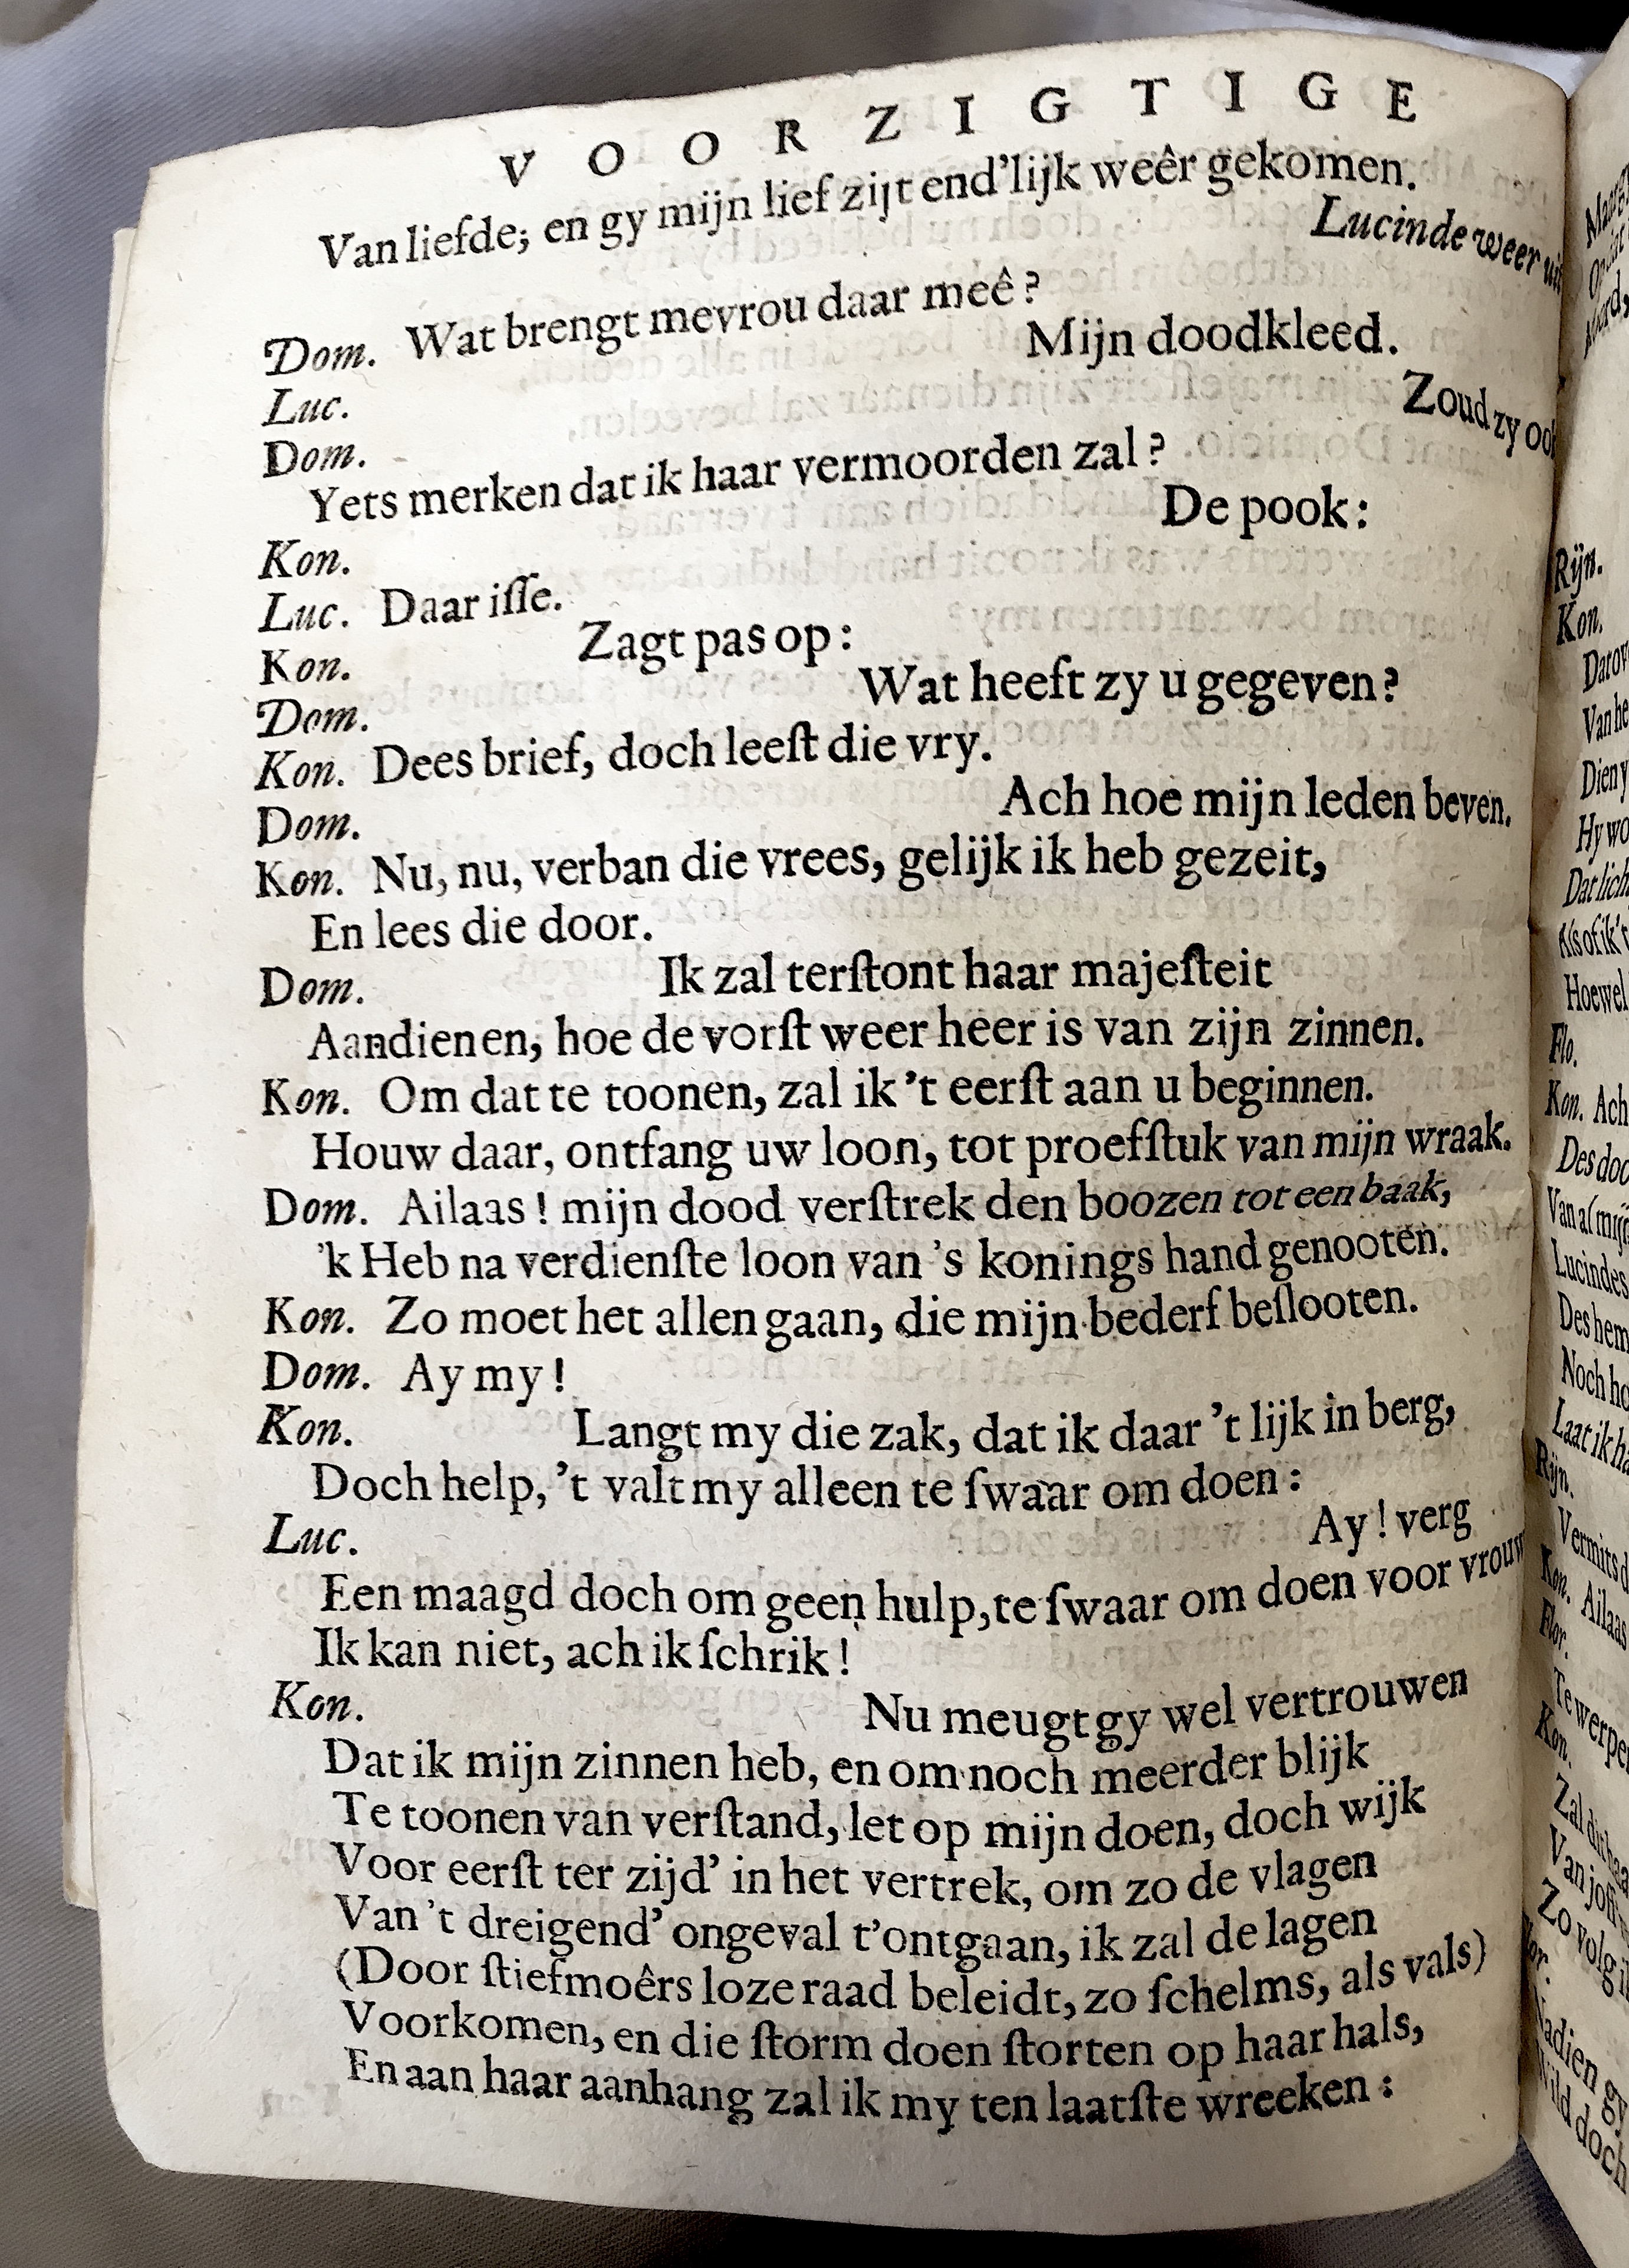 VOORZIGTIGE
Van liefde; en gy mijn lief zijt end'lijk weêr gekomen.
Lucinde weer uit
Dom. Wat brengt mevrou daar meê?
Luc. Mijn doodkleed.
Dom. Zoud zy ook
Yets merken dat ik haar vermoorden zal?
Kon. De pook:
Luc. Daar iſſe.
Kon. Zagt pas op:
Dom. Wat heeft zy u gegeven?
Kon. Dees brief, doch leeſt die vry.
Dom. Ach hoe mijn leden beven.
Kon. Nu, nu, verban die vrees, gelijk ik heb gezeit,
En lees die door.
Dom. Ik zal terſtont haar majeſteit
Aandienen, hoe de vorſt weer heer is van zijn zinnen.
Kon. Om dat te toonen, zal ik 't eerſt aan u beginnen.
Houw daar, ontfang uw loon, tot proefſtuk van mijn wraak.
Dom. Ailaas! mijn dood verſtrek den boozen tot een baak,
'k Heb na verdienſte loon van 's konings hand genooten.
Kon. Zo moet het allen gaan, die mijn bederf beſlooten.
Dom. Ay my!
Kon. Langt my die zak, dat ik daar 't lijk in berg,
Doch help, 't valt my alleen te ſwaar om doen:
Luc. Ay! verg
Een maagd doch om geen hulp, te ſwaar om doen voor
Ik kan niet, ach ik ſchrik!
Kon. Nu meugt gy wel vertrouwen
Dat ik mijn zinnen heb, en om noch meerder blijk
Te toonen van verſtand, let op mijn doen, doch wijk
Voor eerſt ter zijd' in het vertrek, om zo de vlagen
Van 't dreigend' ongeval t'ontgaan, ik zal de lagen
(Door ſtiefmoêrs loze raad beleidt, zo ſchelms, als vals)
Voorkomen, en die ſtorm doen ſtorten op haar hals,
En aan haar aanhang zal ik my ten laatſte wreeken:
Rijn.
Kon.
Flo.
Kon. Ach
Lucindes
Rijn.
Kon. Ailaas
Flor.
Kon.